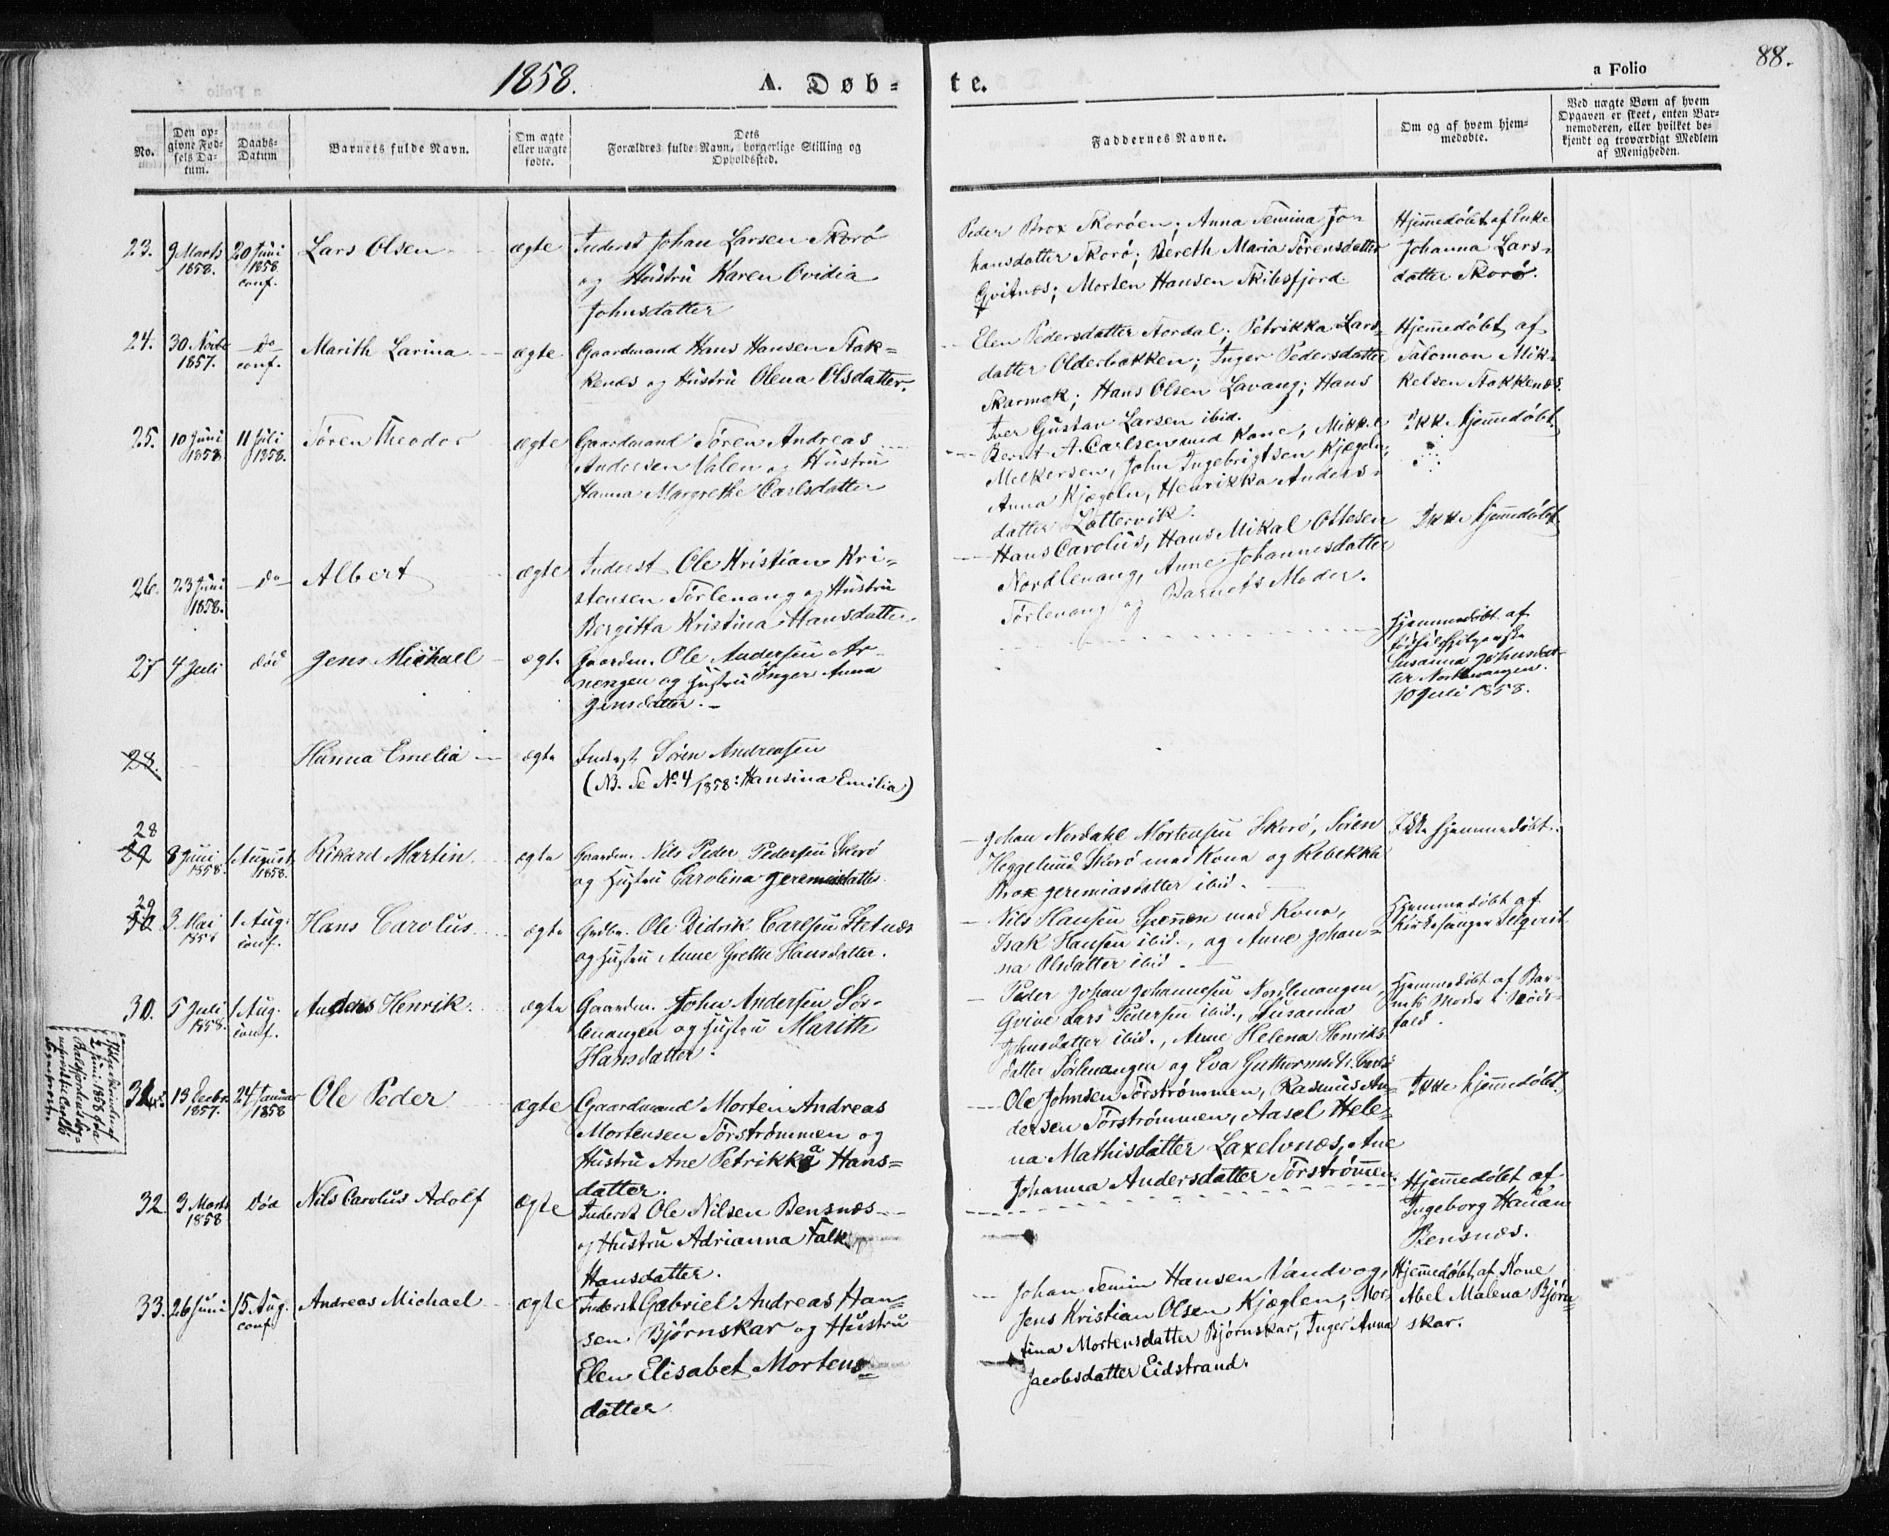 1858. A. Døb- te. a Folio 88.
No.
Den opgivne Fødsels Datum.
Daabs-Datum
Barnets fulde Navn.
Om ægte eller uægte fødte.
Dets Forældres fulde Navn, borgerlige Stilling og Opholdssted.
Faddernes Navne.
Om og af hvem hjemmedøbte.
Ved uægte Børn af hvem Opgaven er skeet, enten Barnemoderen, eller hvilket bekjendt og troværdigt Medlem af Menigheden.
23. 9 Marts 1858. 20 Juni 1858 conf. Lars Olsen ægte
Inderst Johan Larsen Skorø
og Hustru Karen Ovidia
Johnsdatter
Peder Brox Skorøen; Anna Temina Jo-
hansdatter Skorø; Bereth Maria Sørensdatter
Qvitnæs; Morten Hansen Skibsfjord
Hjemmedøbt af Enke
Johanna Lars-
datter Skorø.
24. 30 Novbr 1857. Do conf. Marith Larina ægte
Gaardmand Hans Hansen Stak-
kenæs og Hustru Olena Olsdatter.
Elen Pedersdatter Nordal; Petrikka Lars-
datter Olderbakken; Inger Pedersdatter
Skarmok; Hans Olsen Lavang; Hans
Iver Gustav Larsen ibid.
Hjemmedøbt af
Salomon Mik-
kelsen Stakkenæs.
25. 10 Juni 1858. 11 Juli 1858. Søren Theodor ægte
Gaardmand Søren Andreas
Andersen Valen og Hustru
Hanna Margrethe Carlsdatter
Bernt A. Carlsen med Kone; Mikkel
Melkersen, John Ingebrigtsen Kjægeln,
Anna Kjægeln, Henrikka Anders-
datter Lattervik.
Ikke hjemmedøbt
26. 23 Juni 1858. Do Albert ægte
Inderst Ole Kristian Kri-
stensen Sørlenang og Hustru
Bergitta Kristina Hansdatter.
Hans Carolus, Hans Mikal Ottesen
Nordlenang, Anne Johannesdatter
Sørlenang og Barnets Moder.
Ikke hjemmedøbt
27 4 Juli død Jens Michael ægte
Gaardm. Ole Andersen Ar-
nengen og Hustru Inger Anna
Jensdatter.
Hjemmedøbt af
Susanna Johnsdat-
ter
10 Juli 1858.
28. Hanna Emelia ægte
Inderst Søren Andreasen
(NB. Se No 4/1858: Hansina Emilia)
28
29 8 Juni 1858. 1 August 1858. Rikard Martin ægte
Gaardm. Nils Peder Pedersen Skorø
og Hustru Carolina Jeremiasdatter
Johan Nordahl Mortensen Skorø, Søren
Heggelund Skorø med Kona og Rebekka
Brox Jeremiasdatter ibid.
Ikke hjemmedøbt.
29
30 3 Mai 1 Aug. conf. Hans Carolus ægte
Ole Didrik Carlsen Sletnæs
og Hustru Anne Grethe Hansdatter.
Nils Hansen med Kona,
Isak Hansen ibid., og Anne Johan-
na Olsdatter ibid.
Hjemmedøbt af
Kirkesanger
30. 5 Juli 1858. 1 Aug. conf. Anders Henrik ægte
Gaardm. John Andersen Sør-
lenangen og Hustru Marith
Hansdatter.
Peder Johan Johannesen Nordlenangen,
Qvive Lars Pedersen ibid., Susanna
Johnsdatter ibid., Anne Helena Henriks-
datter Sørlenangen og Eva
Hjemmedøbt af Bar-
nets Moder i Nøds-
fald.
31 13 Decbr. 1857. 24 Januar 1858 Ole Peder ægte
Gaardmand Morten Andreas
Mortensen Sørstrømmen og
Hustru Ane Petrikka Hans-
datter.
Ole Johnsen Sørstrømmen, Rasmus An-
dersen Sørstrømmen, Aasel Hele-
na Mathisdatter Laxelvnæs, Ane
Johanna Andersdatter Sørstrømen.
Ikke hjemmedøbt.
32 3 Marts 1858 Død Nils Carolus Adolf ægte
Inderst Ole Nilsen Bensnæs
og Hustru Adrianna Falk
Hansdatter.
Hjemmedøbt af
Ingeborg Hauan
Bensnæs.
33. 26 Juni 15 Aug. conf. Andreas Michael ægte
Inderst Gabriel Andreas Han-
sen Bjørnskar og Hustru
Elen Elisabet Mortens-
datter
Johan Temin Hansen Vandvog,
Jens Kristian Olsen Kjæglen, Mor-
tina Mortensdatter Bjørnskar, Inger Anna
Jacobsdatter Eidstrand.
Hjemmedøbt af Kone
Abel Malena Bjørn-
skar.